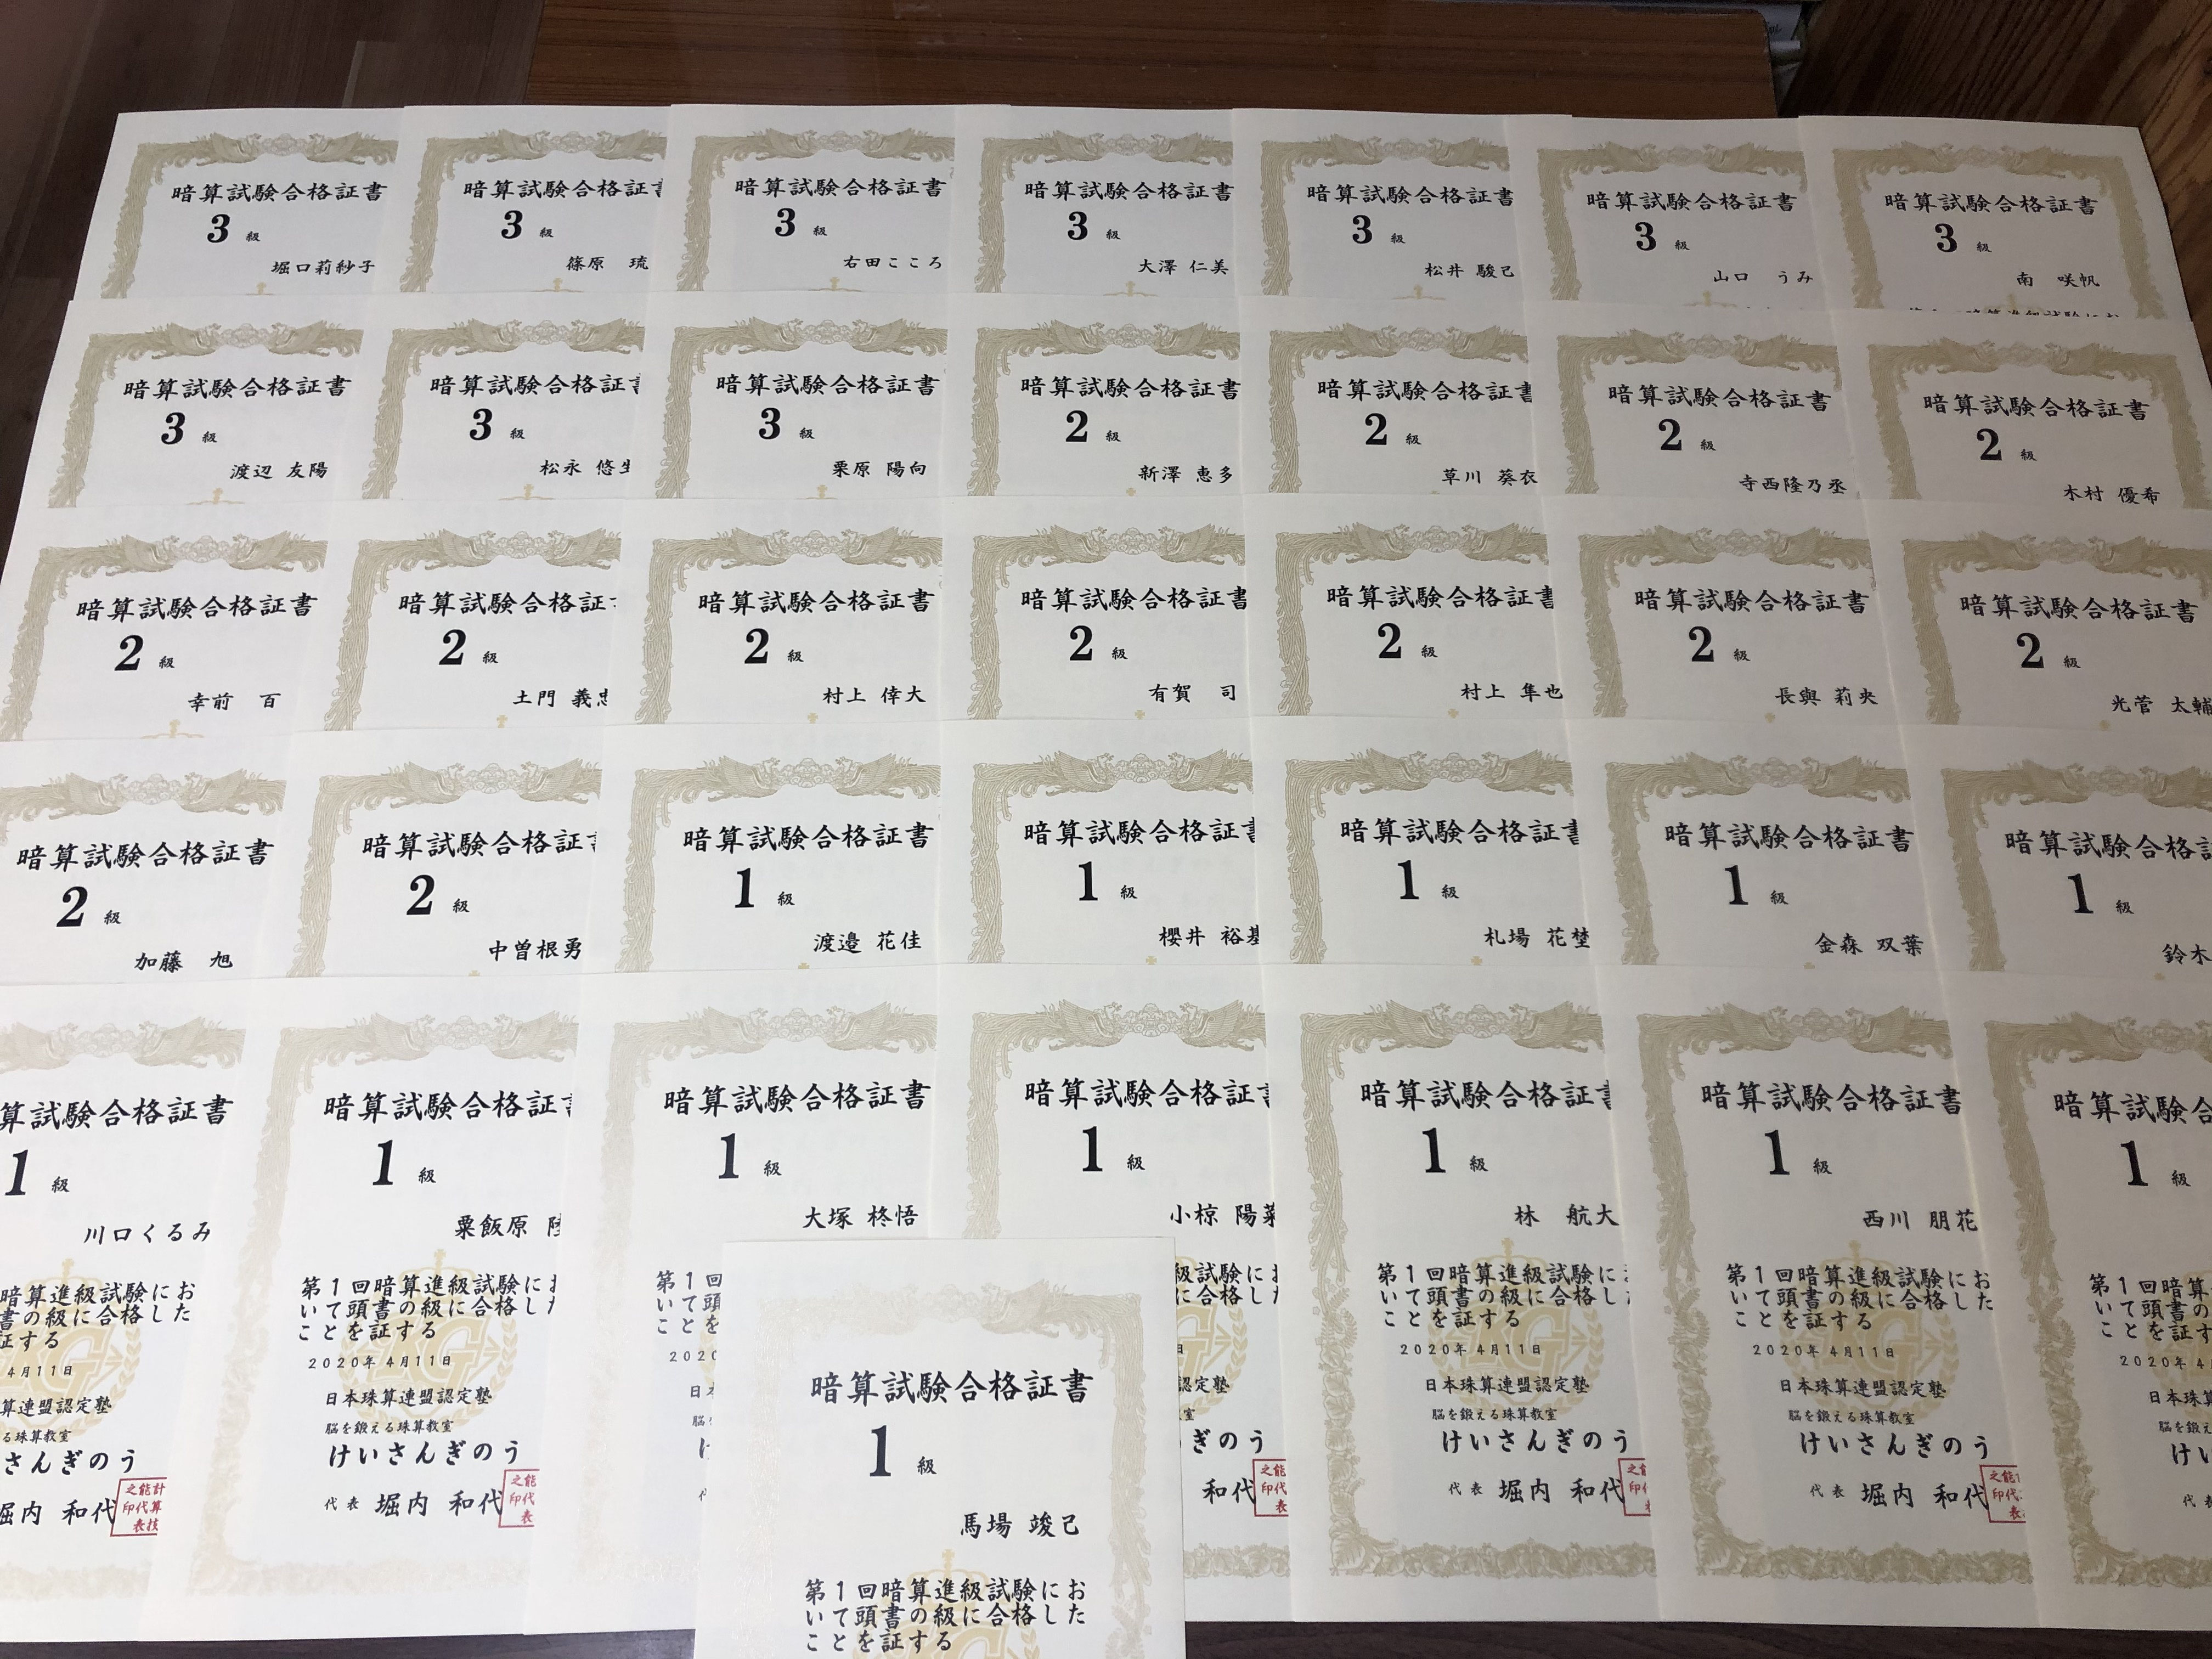 暗算試験合格証書
3 級
堀口莉紗子
暗算試験合格証
3 級
篠原 琉
暗算試験合格証書
3 級
右田こころ
暗算試験合格証書
3 級
大澤 仁美
暗算試験合格証書
3 級
松井 駿己
暗算試験合格証書
3 級
山口 うみ
暗算試験合格証書
3 級
南 咲帆
暗算試験合格証書
3 級
渡辺 友陽
暗算試験合格証
3 級
松永 悠生
暗算試験合格証書
3 級
栗原 陽向
暗算試験合格証書
2 級
新澤 恵多
暗算試験合格証書
2 級
草川 葵衣
暗算試験合格証書
2 級
寺西隆乃丞
暗算試験合格証書
2 級
木村 優希
暗算試験合格証書
2 級
幸前 百
暗算試験合格証
2 級
土門 義忠
暗算試験合格証書
2 級
村上 倖大
暗算試験合格証書
2 級
有賀 司
暗算試験合格証書
2 級
村上 隼也
暗算試験合格証書
2 級
長與 莉央
暗算試験合格証書
2 級
光菅 太輔
暗算試験合格証書
2 級
加藤 旭
暗算試験合格証
2 級
中曽根勇
暗算試験合格証書
1 級
渡邉 花佳
暗算試験合格証書
1 級
櫻井 裕基
暗算試験合格証書
1 級
札場 花埜
暗算試験合格証書
1 級
金森 双葉
暗算試験合格
1 級
鈴木
算試験合格証書
1 級
川口くるみ
暗算進級試験にお
書の級に合格した
証する
4月11日
算連盟認定塾
る珠算教室
さんぎのう
堀内 和代
暗算試験合格証
1 級
粟飯原
第1回暗算進級試験にお
いて頭書の級に合格し
ことを証する
2020年4月11日
日本珠算連盟認定塾
脳を鍛える珠算教室
けいさんぎのう
代表 堀内 和代
暗算試験合格証書
1 級
大塚 柊悟
第1回
いて頭
ことを
202
日
脳
け
暗算試験合格証
1 級
小椋 陽菜
級試験に
に合格し
認定塾
ぎのう
和代
暗算試験合格証
1 級
林 航大
第1回暗算進級試験に
いて頭書の級に合格し
ことを証する
2020年4月11日
日本珠算連盟認定塾
脳を鍛える珠算教室
けいさんぎのう
代表 堀内 和代
暗算試験合格証書
1 級
西川 朋花
第1回暗算進級試験にお
いて頭書の級に合格した
ことを証する
2020年4月11日
日本珠算連盟認定塾
脳を鍛える珠算教室
けいさんぎのう
代表 堀内 和代
暗算試験合
1 級
第1回暗算
いて頭書の
ことを証す
2020年4
日本珠算
脳を鍛え
けい
代表
暗算試験合格証書
1 級
馬場 竣己
第1回暗算進級試験にお
いて頭書の級に合格した
ことを証する